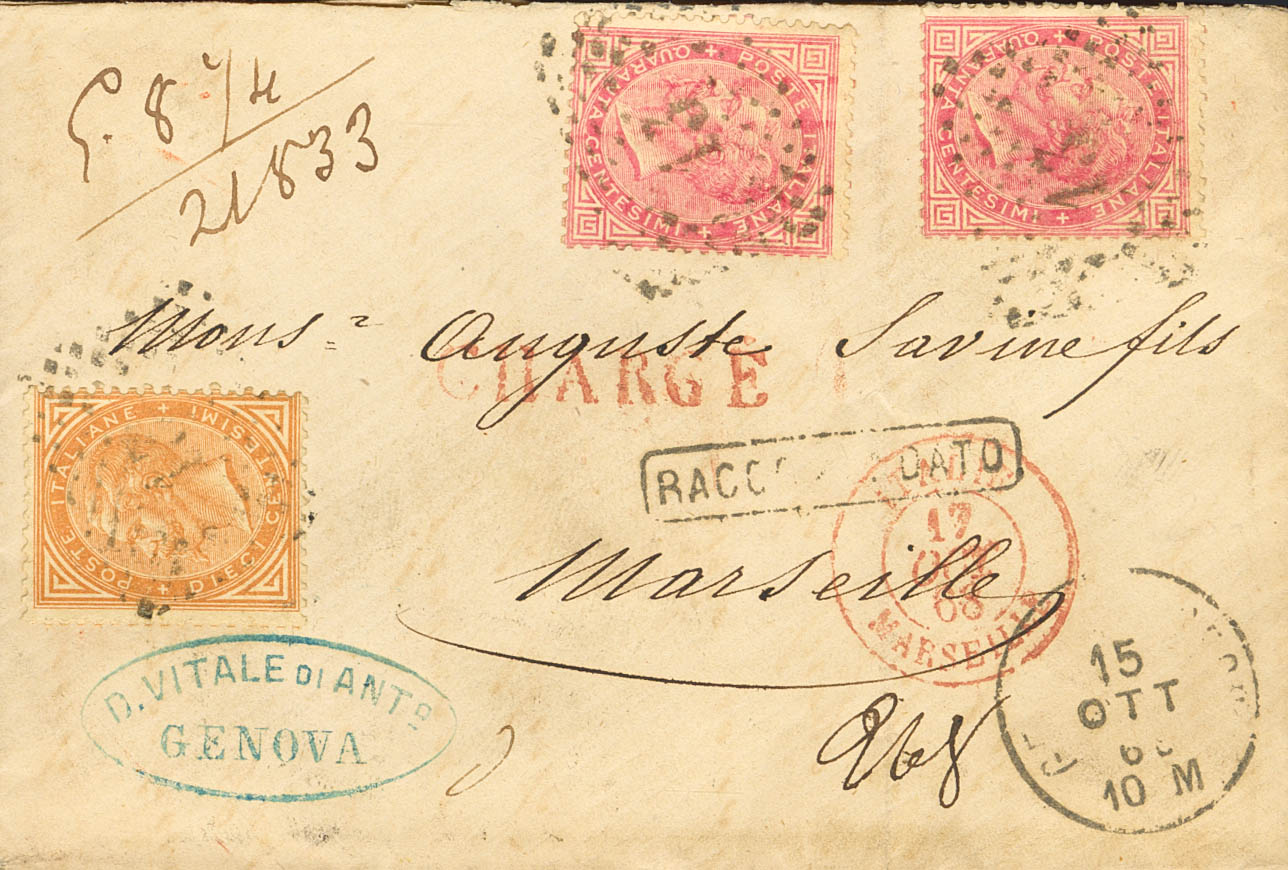 G. 8 1/4
21833
POSTE ITALIANE
QUARANTA CENTESIMI
13
POSTE ITALIANE
QUARANTA CENTESIMI
Mons= Auguste Savine fils
CHARGÉ
POSTE ITALIANE
DIECI CENTESIMI
RACCO DATO
Marseille
17
OCT
68
MARSEILLE
D. VITALE DI ANTO
GENOVA
968
15
OTT
10 M